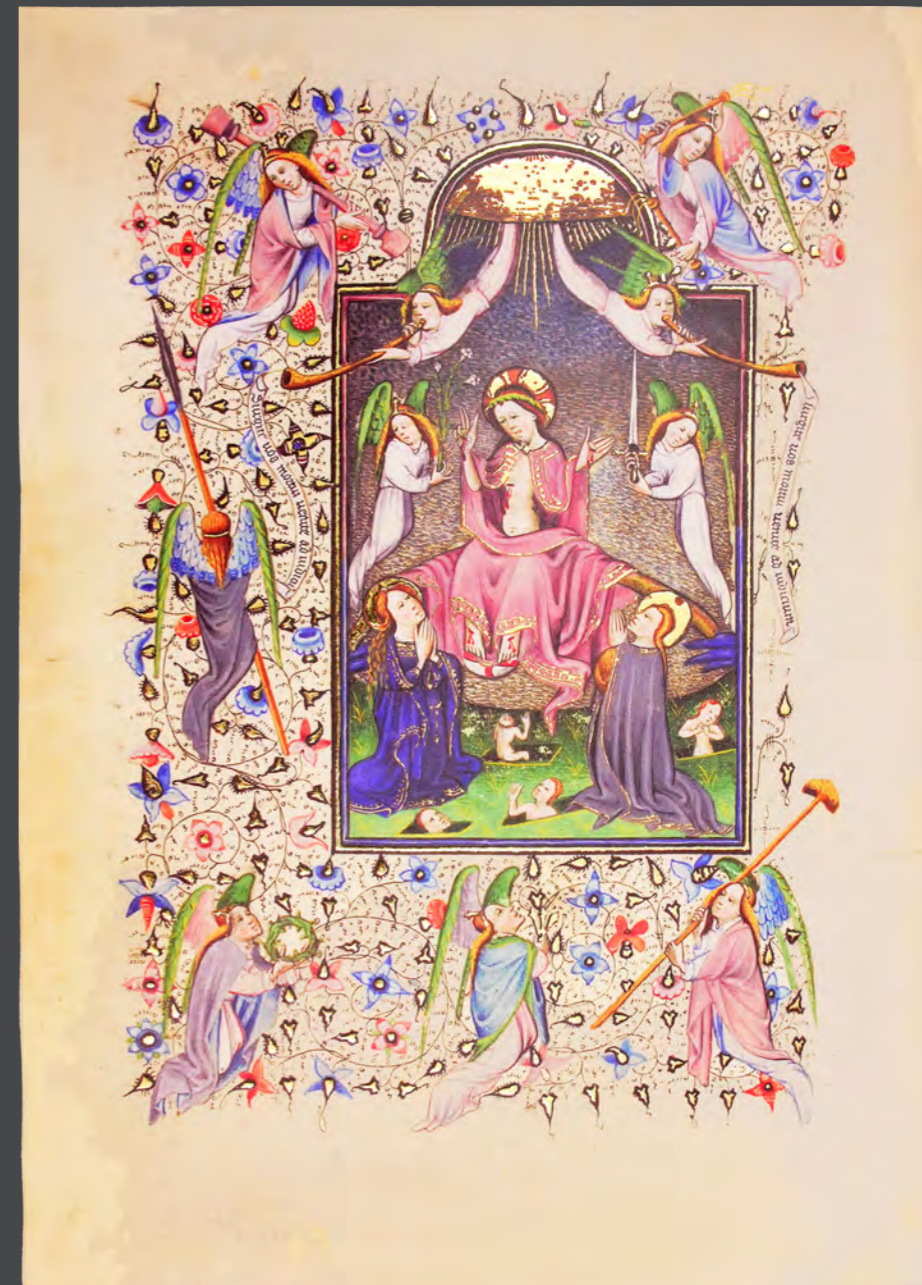 Surgite uos mortui uenite ad iudiciu
Surgite uos mortui uenite ad iudicium